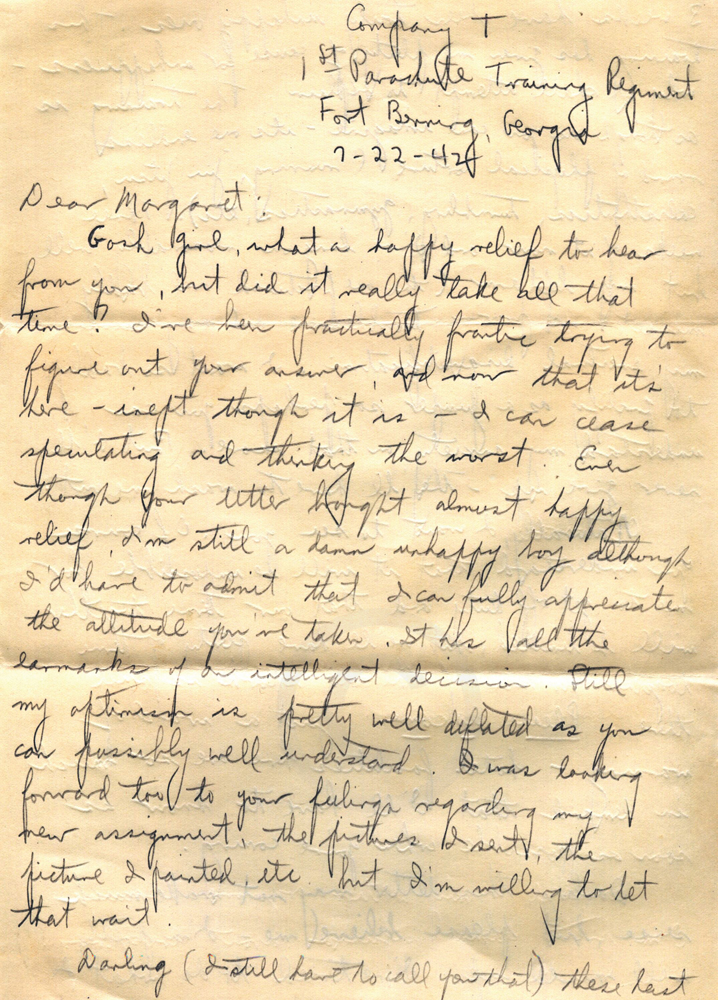 Company T
1st Parachute Training Regiment
Fort Benning, Georgia
7-22-42
Dear Margaret:
Gosh girl, what a happy relief to hear
from you, but did it really take all that
time? I've been practically frantic trying to
figure out your answer, and now that it's
here - inept though it is - I can cease
speculating and thinking the worst. Even
though your letter brought almost happy
relief, I'm still a damn unhappy boy although
I'd have to admit that I can fully appreciate
the attitude you've taken. It has all the
earmarks of an intelligent decision. Still
my optimism is pretty well deflated as you
can possibly well understand. I was looking
forward too to your feelings regarding my
new assignment, the pictures I sent, the
picture I painted, etc but I'm willing to let
that wait.
Darling (I still have to call you that) these last